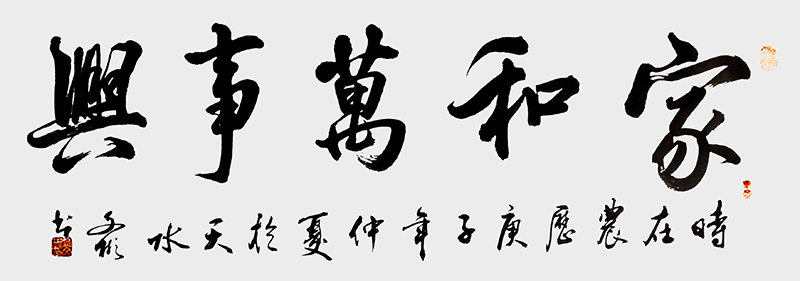 家和萬事興
時在農歷庚子年仲夏於天水